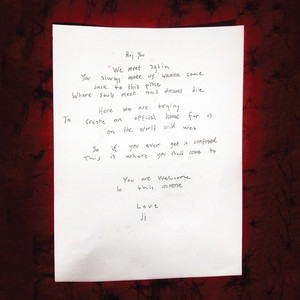 Hej You
We meet again
You always make us wanna come
back to this place
Where souls meet and dreams die
Here we are trying
To create an official home for us
on the world wild web
So if you ever get confused
This is where you shall come to
You are welcome
to this universe
Love
ji